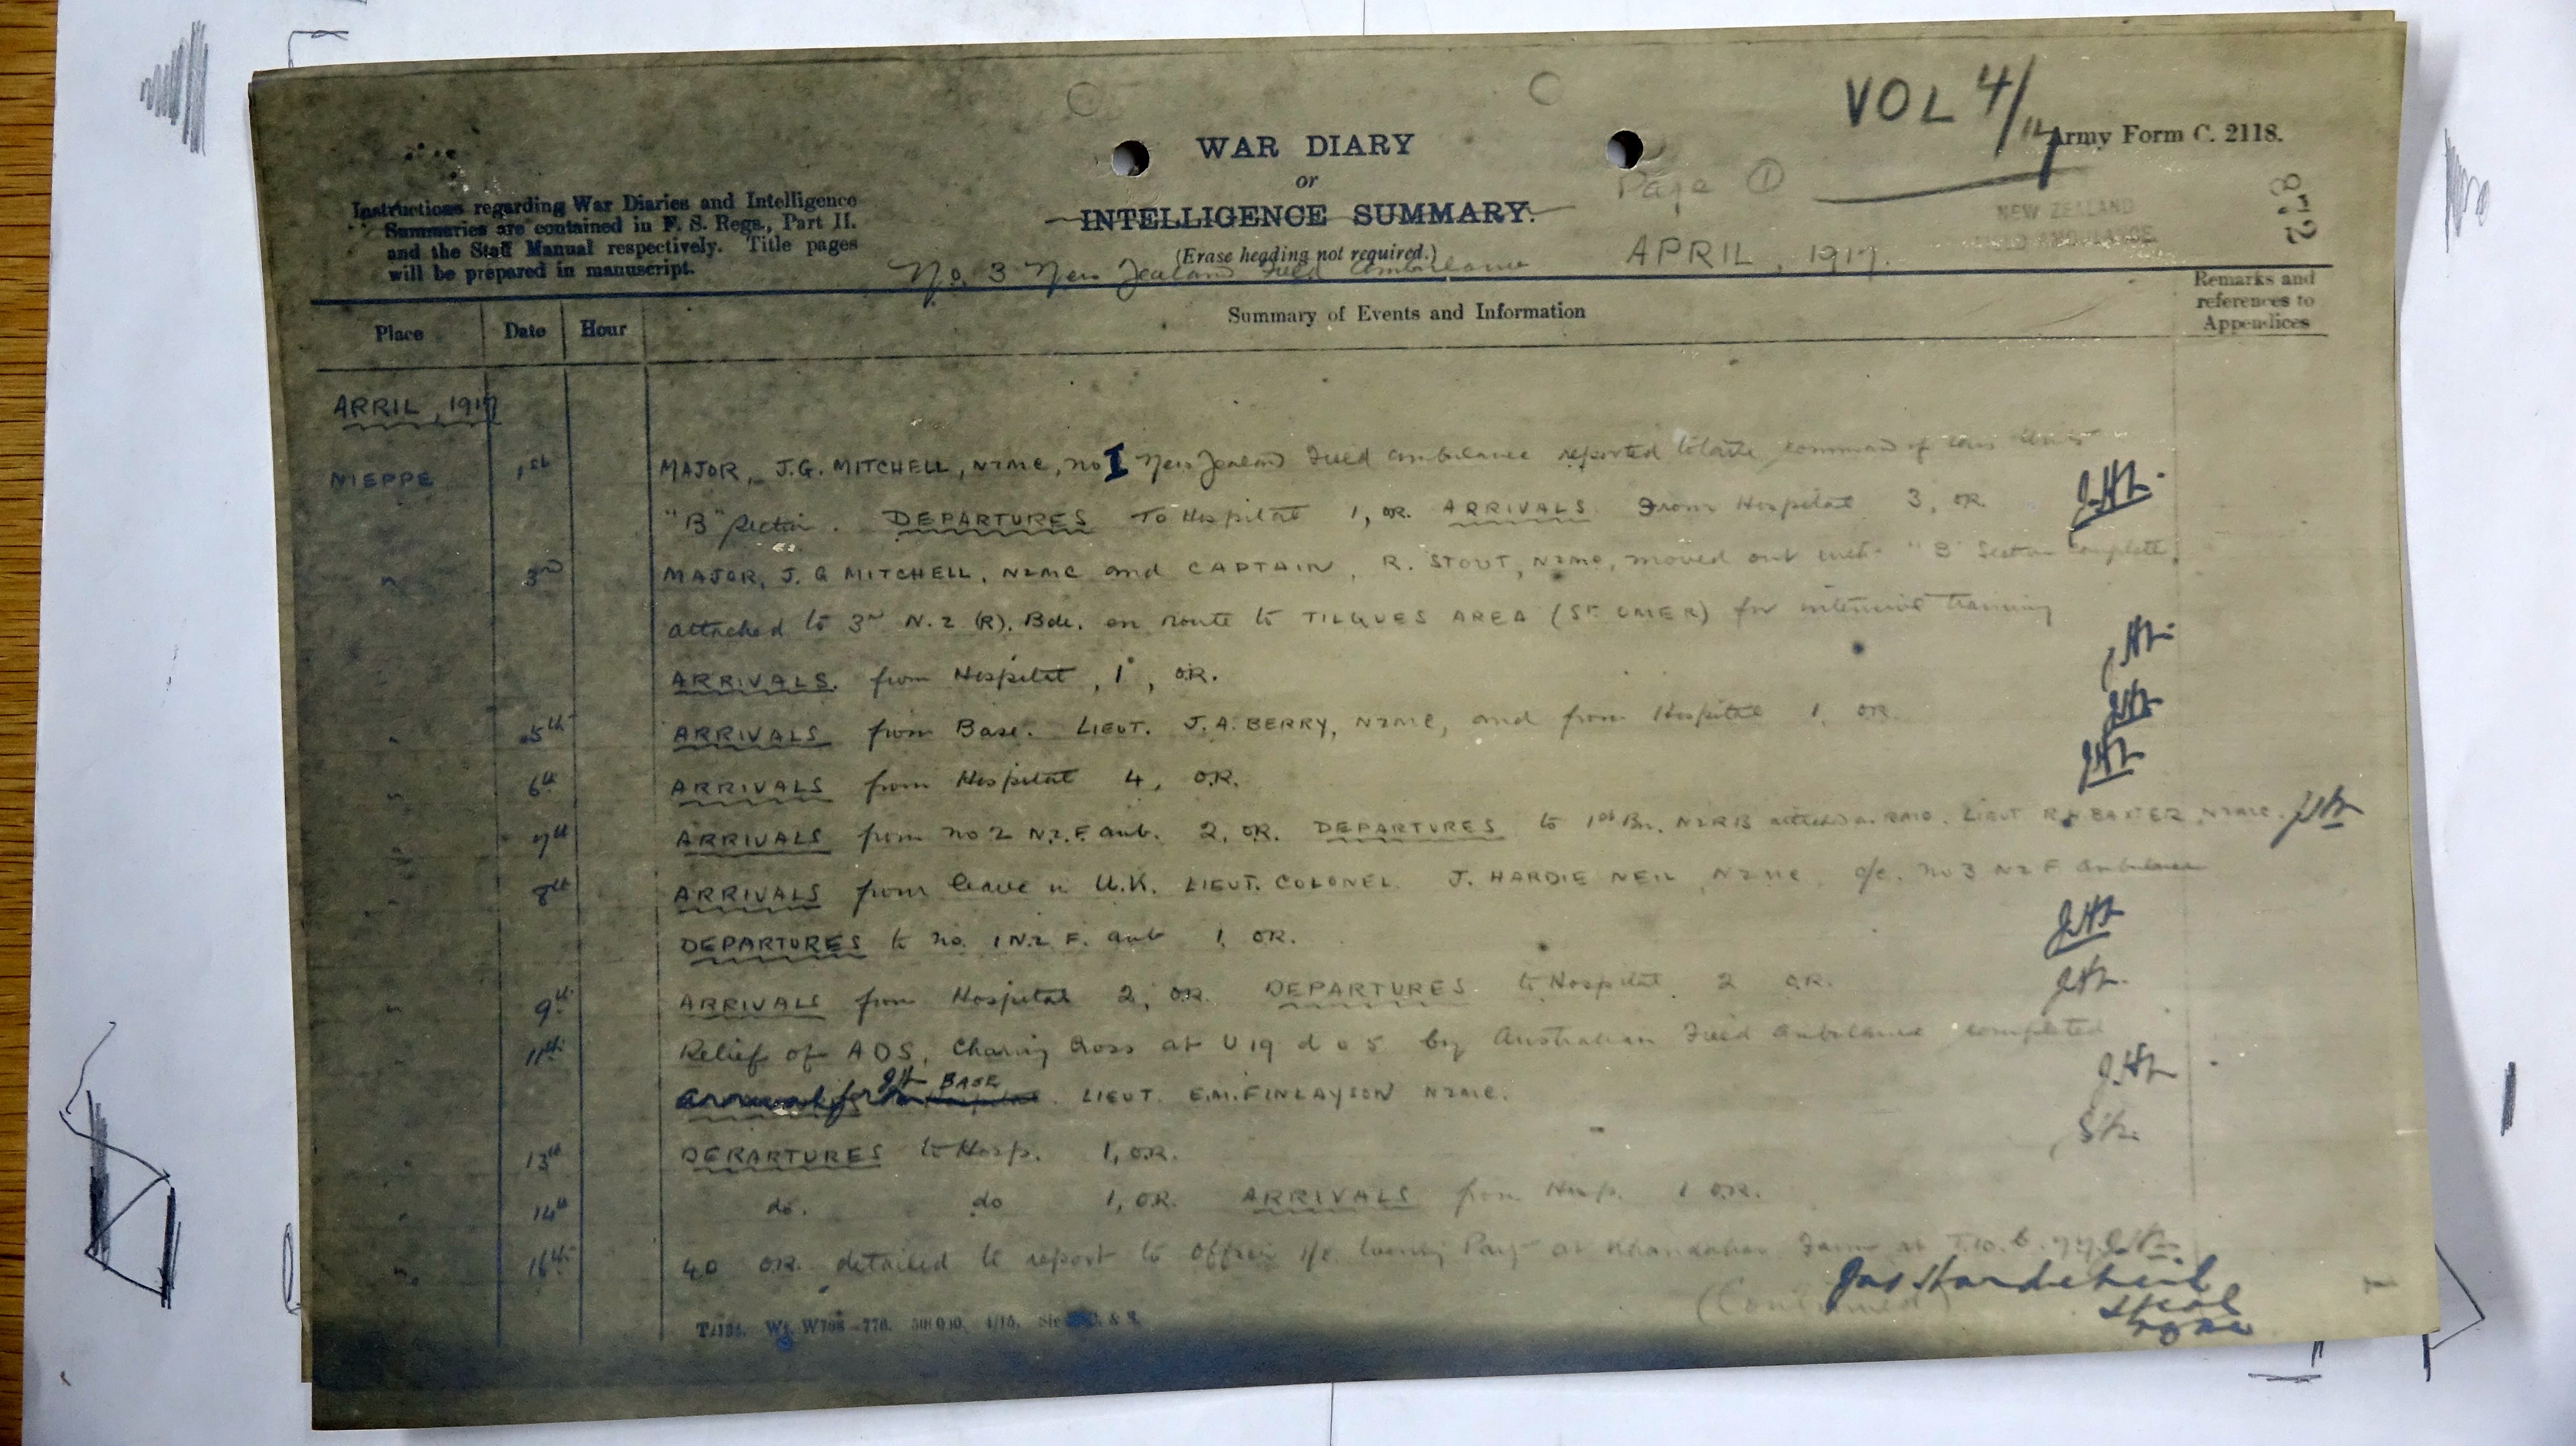 VOL 4/14
Army Form C. 2118.
WAR DIARY
or
INTELLIGENCE SUMMARY.
(Erase heading not required.)
Page ①
NEW ZEALAND
FIELD AMBULANCE
APRIL, 1917.
Instructions regarding War Diaries and Intelligence
Summaries are contained in F. S. Regs., Part II.
and the Staff Manual respectively. Title pages
will be prepared in manuscript.
No. 3 New Zealand Field Ambulance
Place Date Hour Summary of Events and Information Remarks and
references to
Appendices
APRIL, 1917
NIEPPE 1st MAJOR, J.G. MITCHELL, NZMC, no I New Zealand Field ambulance reported to take command of this Units
"B" Section. DEPARTURES To Hospital 1, OR. ARRIVALS From Hospital 3, OR. JHN.
" 3rd MAJOR, J. G MITCHELL, NZMC and CAPTAIN, R. STOUT, NZMC, moved out with "B" Section complete,
attached to 3rd N.Z (R). Bde. en route to TILQUES AREA (ST OMER) for intensive training
ARRIVALS. from Hospital, 1, OR. JHN.
" 5th ARRIVALS from Base. LIEUT. J.A. BERRY, NZMC, and from Hospital 1, OR. JHN
" 6th ARRIVALS from Hospital 4, OR. JHN
" 7th ARRIVALS from no 2 NZ.F. amb. 2, OR. DEPARTURES to 1st Bn. NZRB attached as RMO. LIEUT R.H BAXTER, NZMC. JHN
" 8th ARRIVALS from leave in U.K. LIEUT. COLONEL J. HARDIE NEIL, NZMC, o/c. no 3 NZ F Ambulance
DEPARTURES to no. 1 N.Z F. amb 1, OR. JHN
" 9th ARRIVALS from Hospital 2, OR. DEPARTURES to Hospital 2 OR. JHN.
11th Relief of ADS, Charing Cross at U 19 d 0 5 by Australian Field Ambulance completed
JH BASE LIEUT. E.M. FINLAYSON NZMC. J.HN
" 13th DEPARTURES to Hosp. 1, OR.
" 14th do. do 1, OR. ARRIVALS from Hosp. 1 OR.
" 16th 40 OR. detailed to report to Officer i/c. Party at Khandahar Farm at
(Continued)
Jas Hardie Neil
Lt Col
NZMC